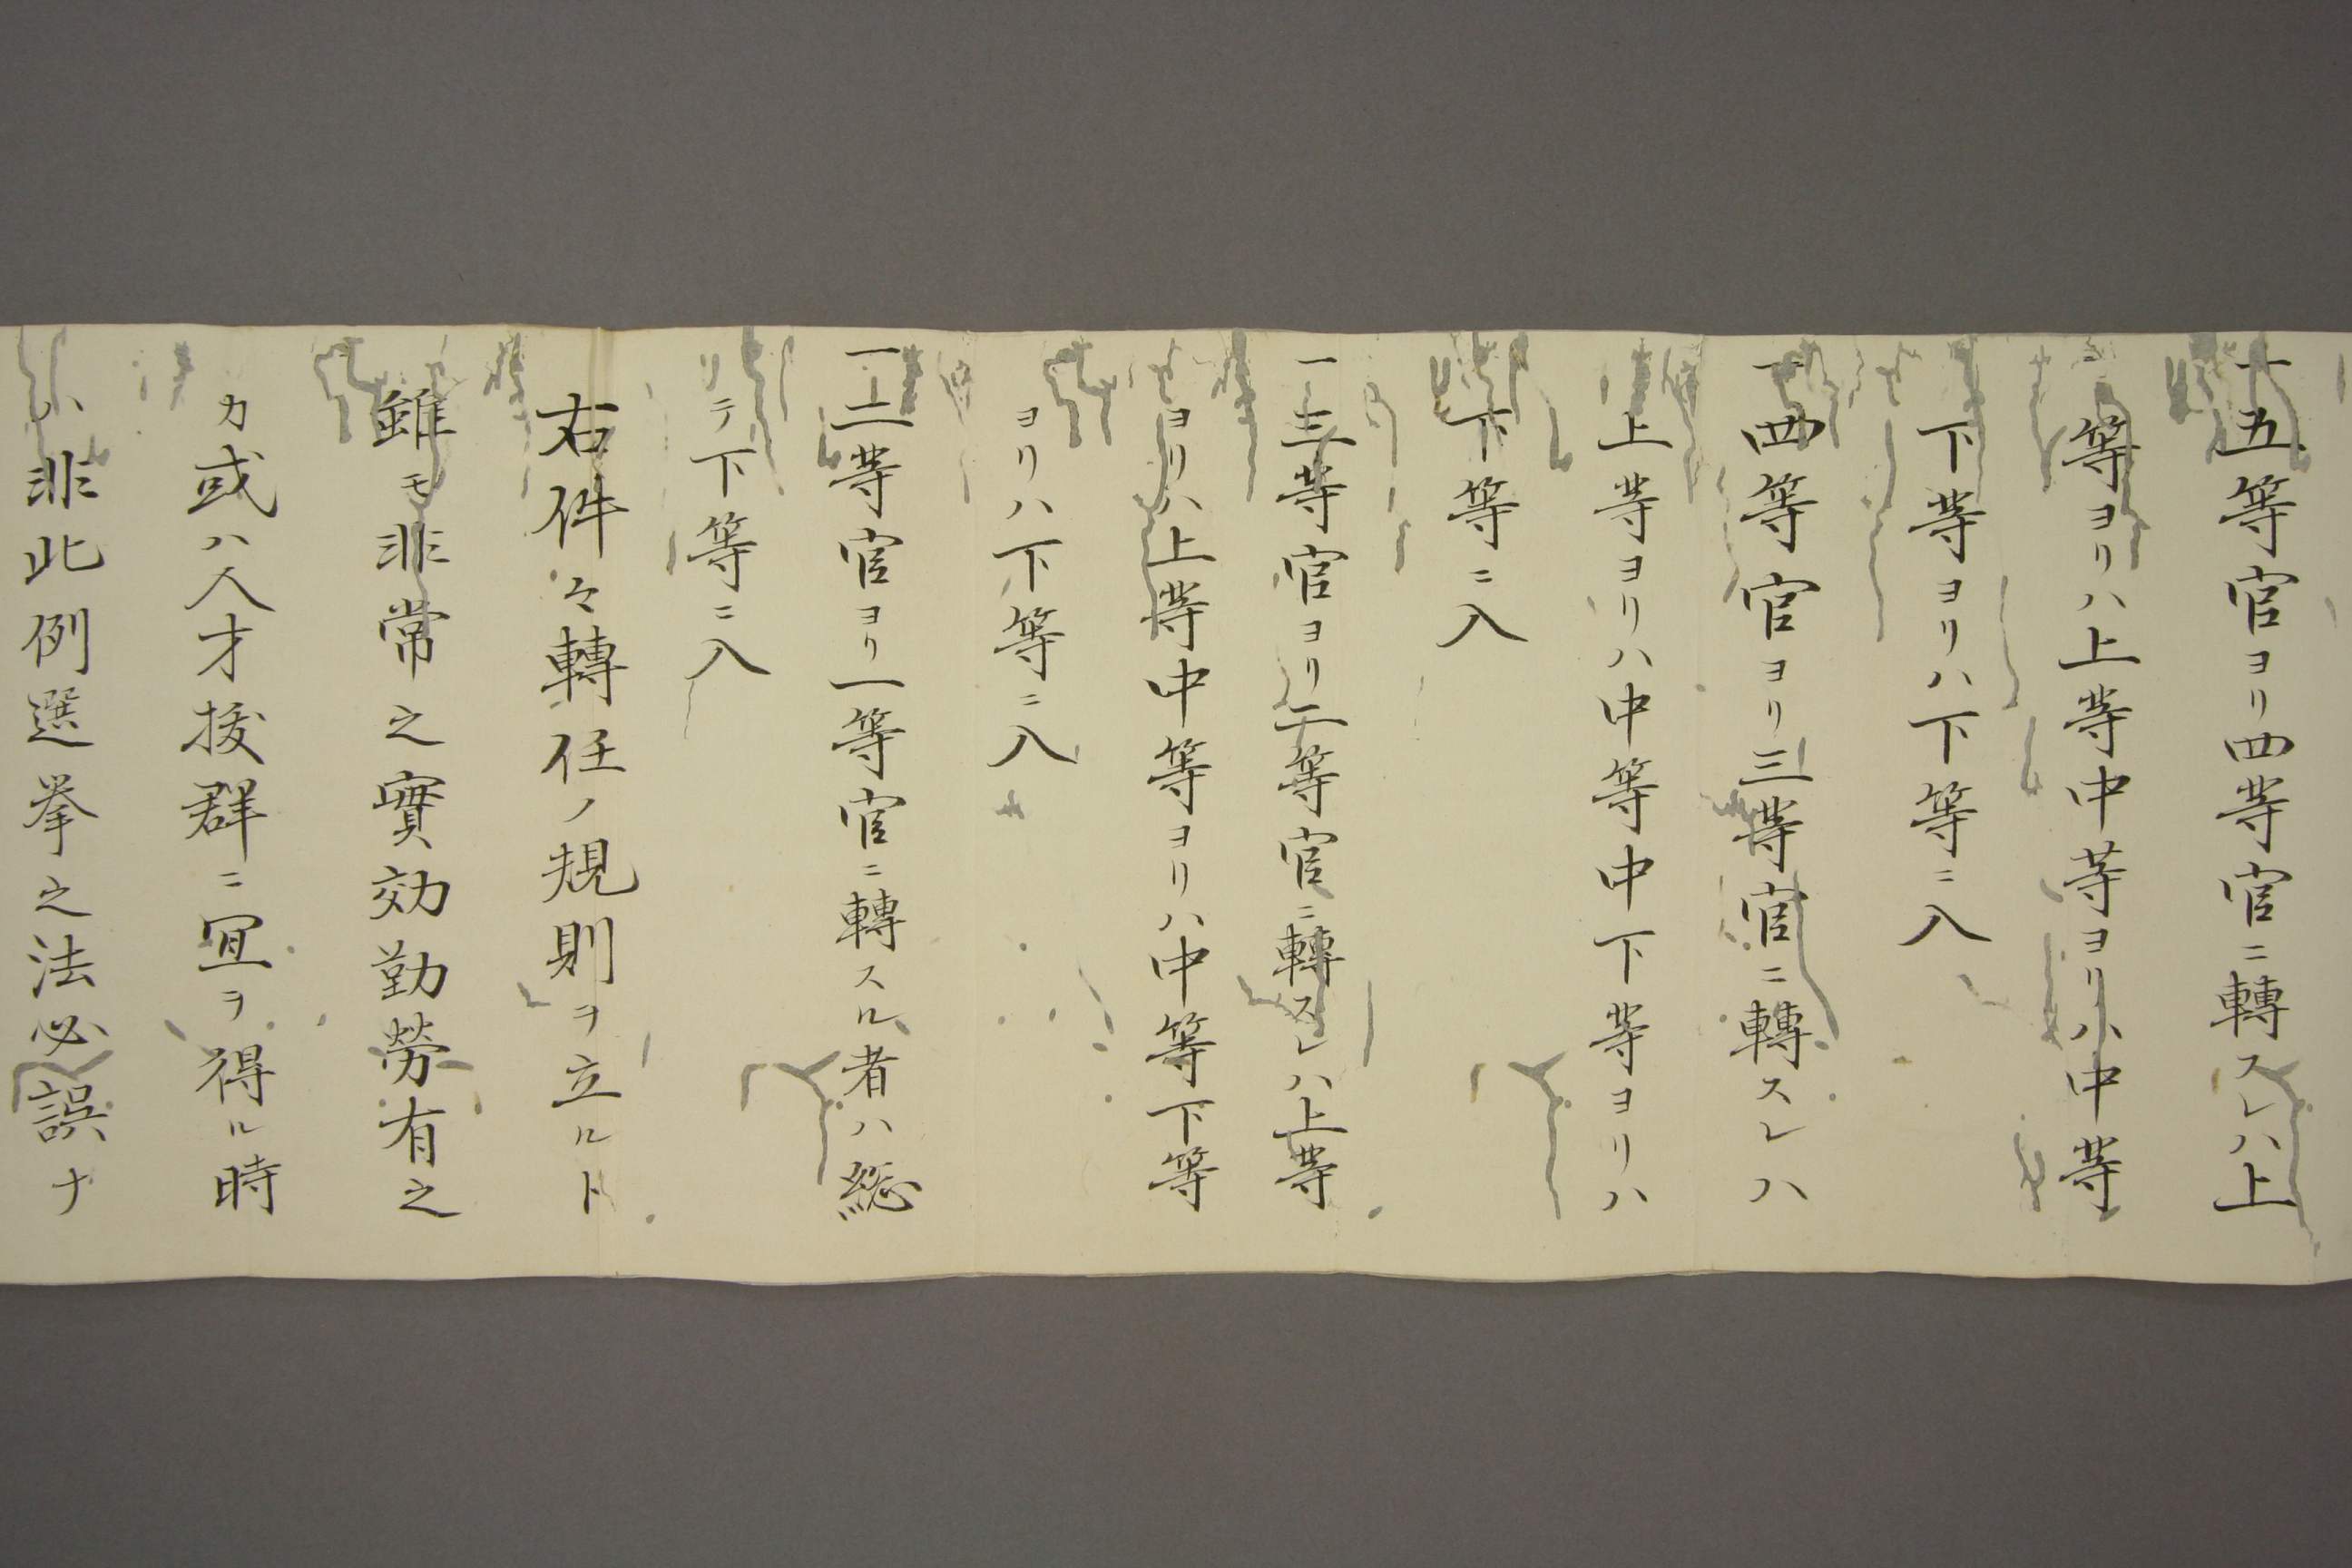 一五等官ヨリ四等官ニ轉スレハ上
等ヨリハ上等中等ヨリハ中等
下等ヨリハ下等ニ入
一四等官ヨリ三等官ニ轉スレハ
上等ヨリハ中等中下等ヨリハ
下等ニ入
一三等官ヨリ二等官ニ轉スレハ上等
ヨリハ上等中等ヨリハ中等下等
ヨリハ下等ニ入
一二等官ヨリ一等官ニ轉スル者ハ総
テ下等ニ入
右件々轉任ノ規則ヲ立ルト
雖モ非常之實効勤勞有之
カ或ハ人才拔群ニ宜ヲ得ル時
ハ非此例選挙之法必誤ナ